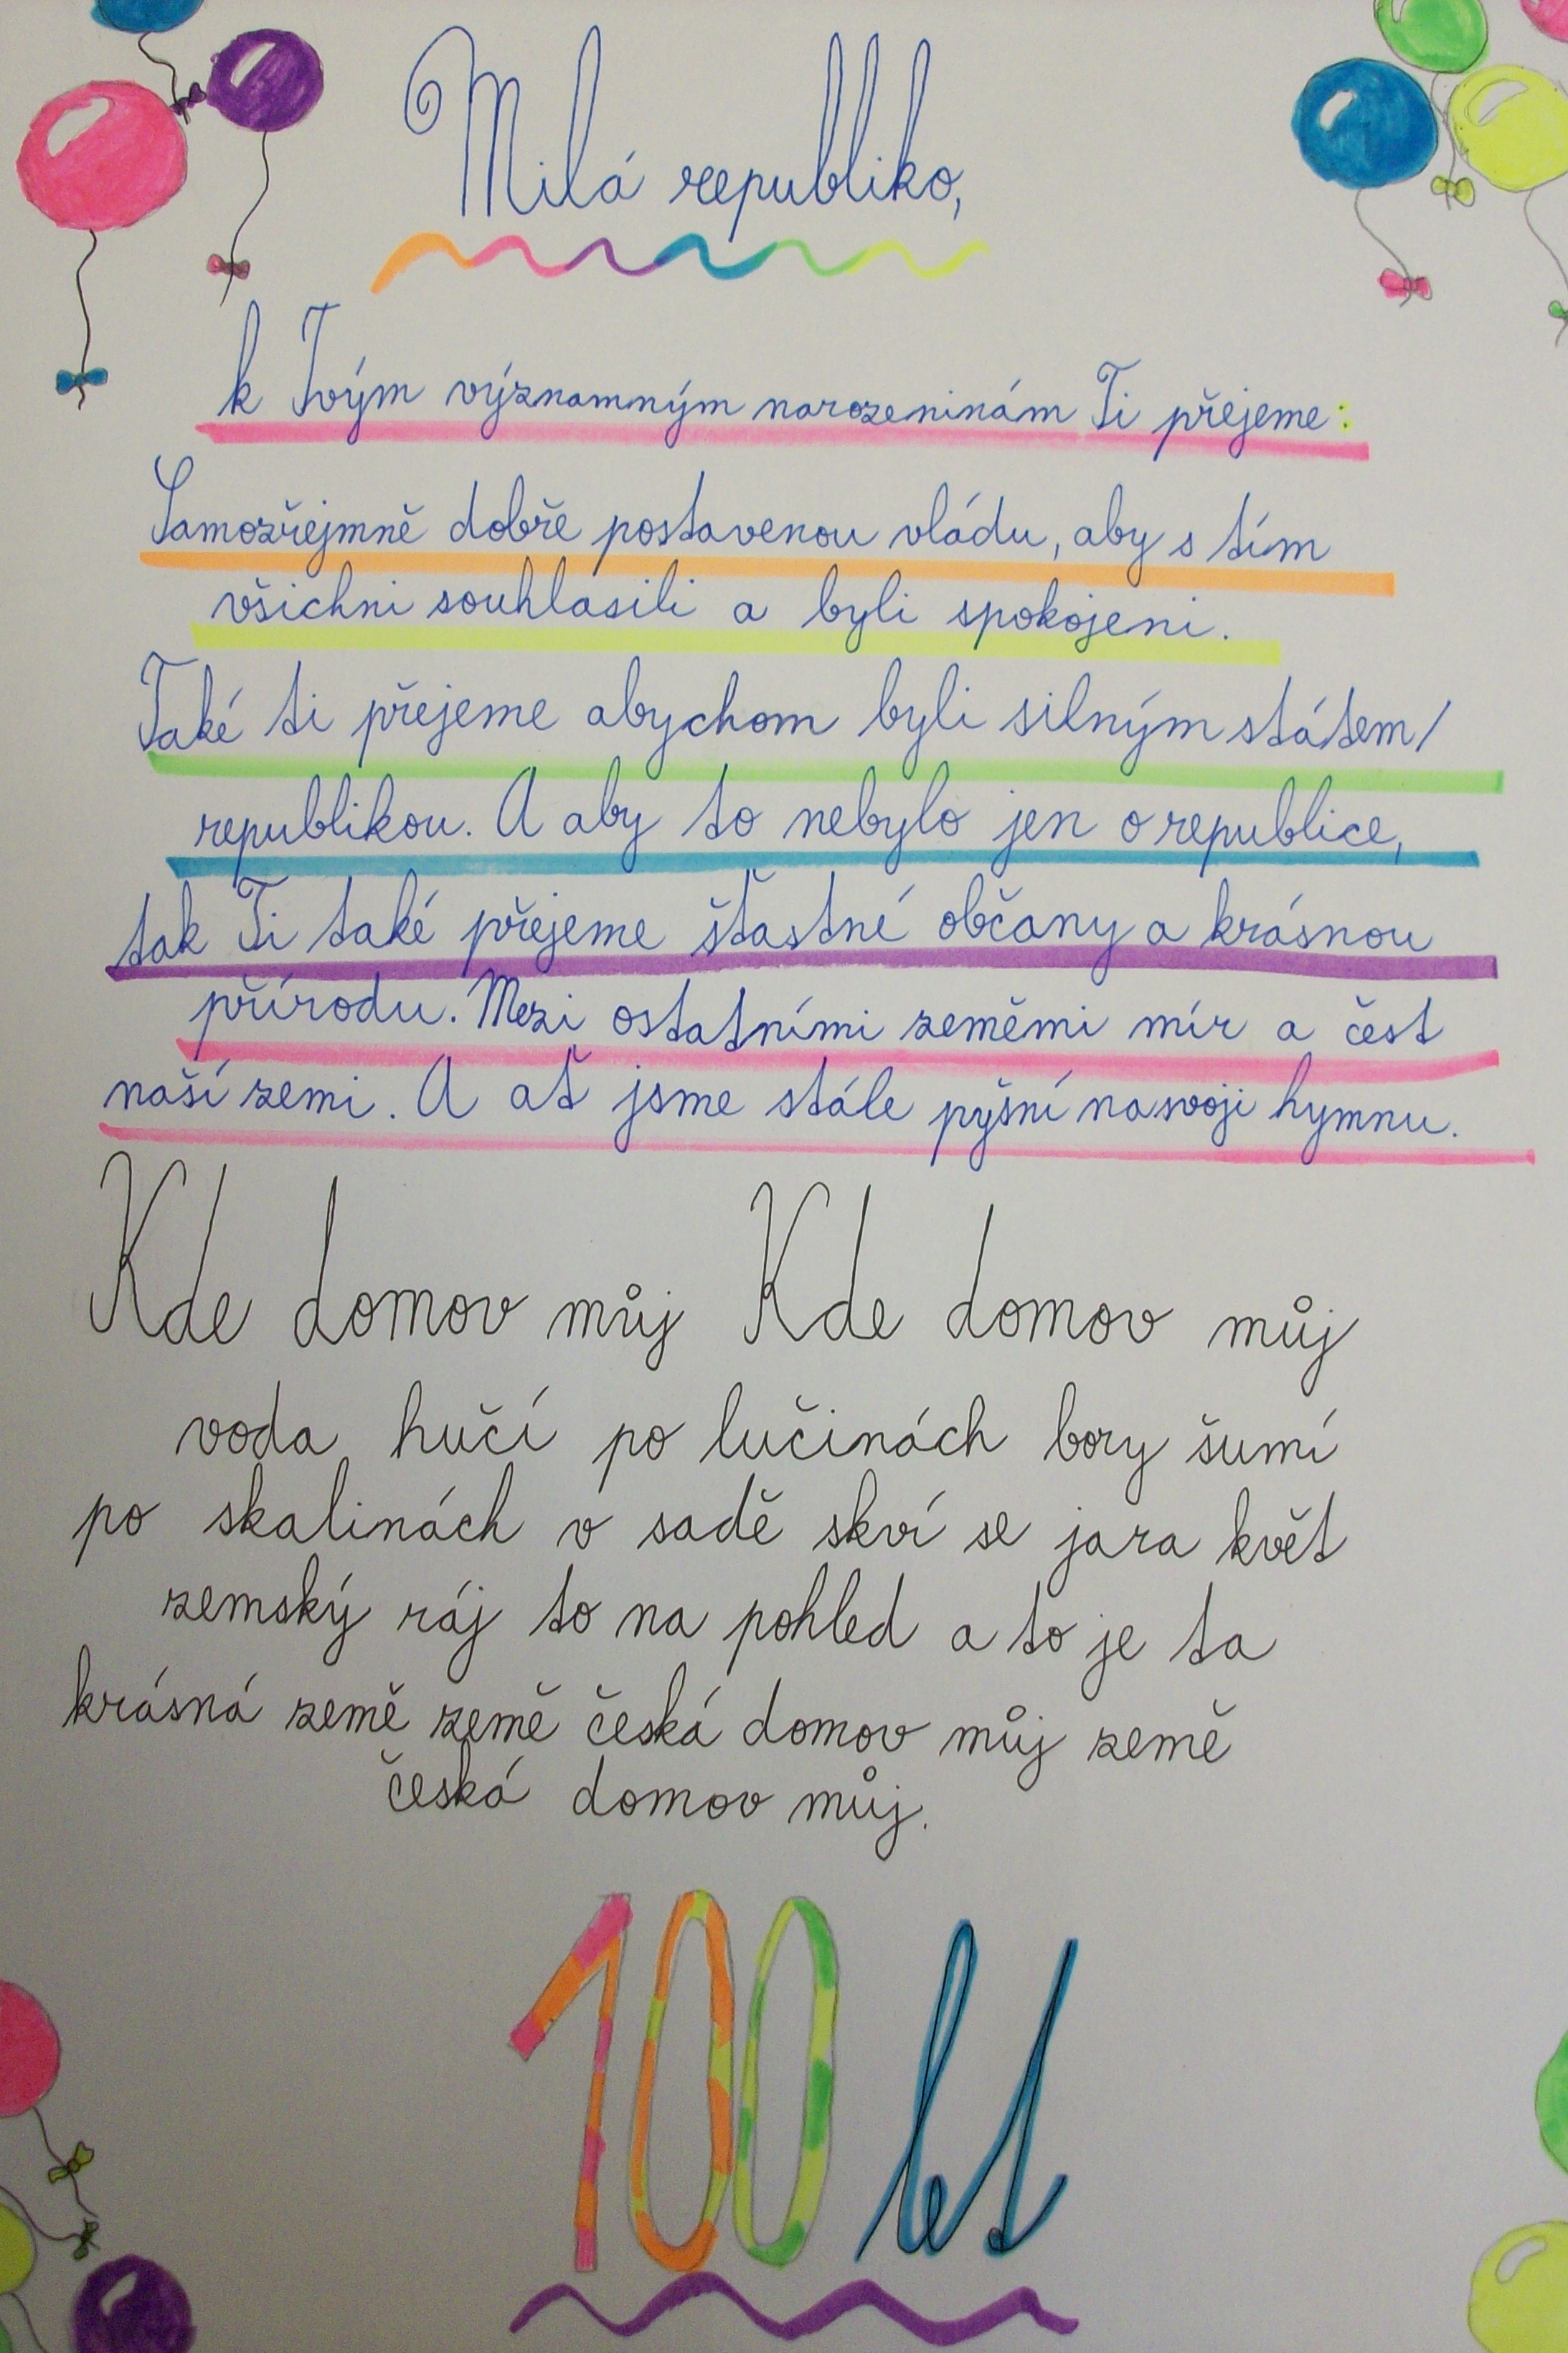 Milá republiko,
k Tvým významným narozeninám Ti přejeme:
Samozřejmně dobře postavenou vládu, aby s tím
všichni souhlasili a byli spokojeni.
Také ti přejeme abychom byli silným státem/
republikou. A aby to nebylo jen o republice,
tak Ti také přejeme šťastné občany a krásnou
přírodu. Mezi ostatními zeměmi mír a čest
naší zemi. A ať jsme stále pyšní na svoji hymnu.
Kde domov můj Kde domov můj
voda hučí po lučinách bory šumí
po skalinách v sadě skví se jara květ
zemský ráj to na pohled a to je ta
krásná země země česká domov můj země
česká domov můj.
100 let